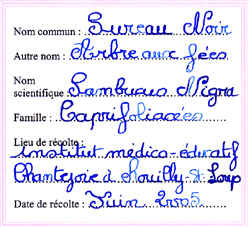 Nom commun : Sureau Noir
Autre nom : Arbre aux fées
Nom
scientifique : Sambucus Nigra
Famille : Caprifoliacées
Lieu de récolte :
institut médico-éducatif
Chantejoie à Rouilly-St-Loup
Date de récolte : Juin 2005